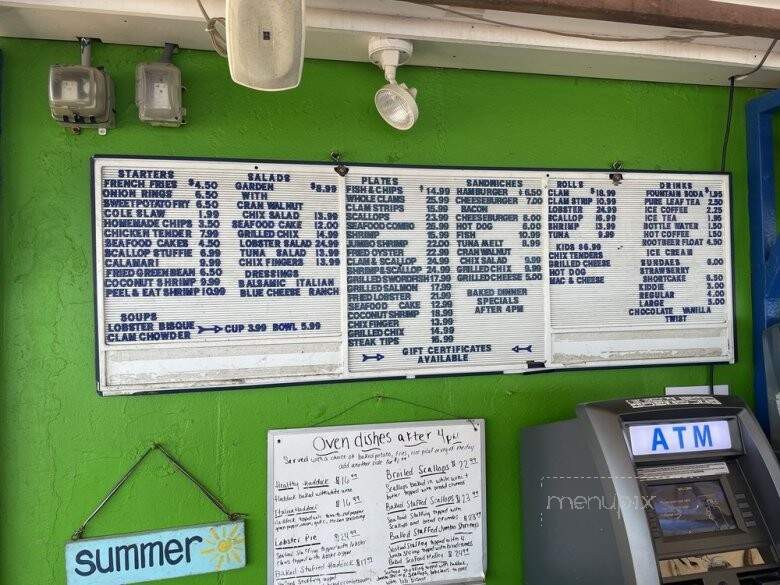 STARTERS
FRENCH FRIES $4.50
ONION RINGS 6.50
SWEETPOTATO FRY 6.50
COLE SLAW 1.99
HOMEMADE CHIPS 3.50
CHICKEN TENDER 7.99
SEAFOOD CAKES 4.50
SCALLOP STUFFIE 6.99
CALAMARI 9.99
FRIED GREEN BEAN 6.50
COCONUT SHRIMP 9.99
PEEL & EAT SHRIMP 10.99
SOUPS
LOBSTER BISQUE CUP 3.99 BOWL 5.99
CLAM CHOWDER
SALADS
GARDEN $8.99
WITH
CRAN WALNUT
CHIX SALAD 13.99
SEAFOOD CAKE 12.00
GRILLED CHIX 14.99
LOBSTER SALAD 24.99
TUNA SALAD 13.99
CHIX FINGERS 13.99
DRESSINGS
BALSAMIC ITALIAN
BLUE CHEESE RANCH
PLATES
FISH & CHIPS $14.99
WHOLE CLAMS 25.99
CLAM STRIPS 15.99
SCALLOPS 23.99
SEAFOOD COMBO 25.99
SHRIMP 15.99
JUMBO SHRIMP 22.00
FRIED OYSTER 22.99
CLAM & SCALLOP 24.99
SHRIMP & SCALLOP 24.99
GRILLED SWORDFISH 17.99
GRILLED SALMON 17.99
FRIED LOBSTER 21.99
SEAFOOD CAKE 12.99
COCONUT SHRIMP 18.99
CHIX FINGER 13.99
GRILLED CHIX 14.99
STEAK TIPS 16.99
SANDWICHES
HAMBURGER $6.50
CHEESEBURGER 7.00
BACON
CHEESEBURGER 8.00
HOT DOG 6.00
FISH 10.99
TUNA MELT 8.99
CRAN WALNUT
CHIX SALAD 9.99
GRILLED CHIX 9.99
GRILLED CHEESE 5.00
BAKED DINNER
SPECIALS
AFTER 4PM
GIFT CERTIFICATES
AVAILABLE
ROLLS
CLAM $18.99
CLAM STRIP 10.99
LOBSTER 24.99
SCALLOP 16.99
SHRIMP 13.99
TUNA 9.99
KIDS $6.99
CHIX TENDERS
GRILLED CHEESE
HOT DOG
MAC & CHEESE
DRINKS
FOUNTAIN SODA $1.95
PURE LEAF TEA 2.50
ICE COFFEE 2.25
ICE TEA 1.95
BOTTLE WATER 1.50
HOT COFFEE 1.50
ROOTBEER FLOAT 4.50
ICE CREAM
SUNDAES 6.00
STRAWBERRY
SHORTCAKE 6.50
KIDDIE 3.00
REGULAR 4.00
LARGE 5.00
CHOCOLATE VANILLA
TWIST
Oven dishes after 4pm
Served with a choice of baked potato, fries,
add another side for
Healthy Haddock $16.99
Haddock baked with white wine
Italian Haddock $16
Lobster Pie $24.99
Seafood Stuffing topped with lobster
Baked Stuffed Haddock $17.99
Broiled Scallops $22.99
Scallops baked in white wine &
butter topped with bread crumbs
Baked Stuffed Scallops $23.99
Seafood Stuffing topped with
Scallops and bread crumbs
Baked Stuffed Jumbo Shrimps
Seafood Stuffing topped with 6
Jumbo Shrimp topped with bread crumbs
Baked Seafood Medley $24.99
summer
ATM
menupix